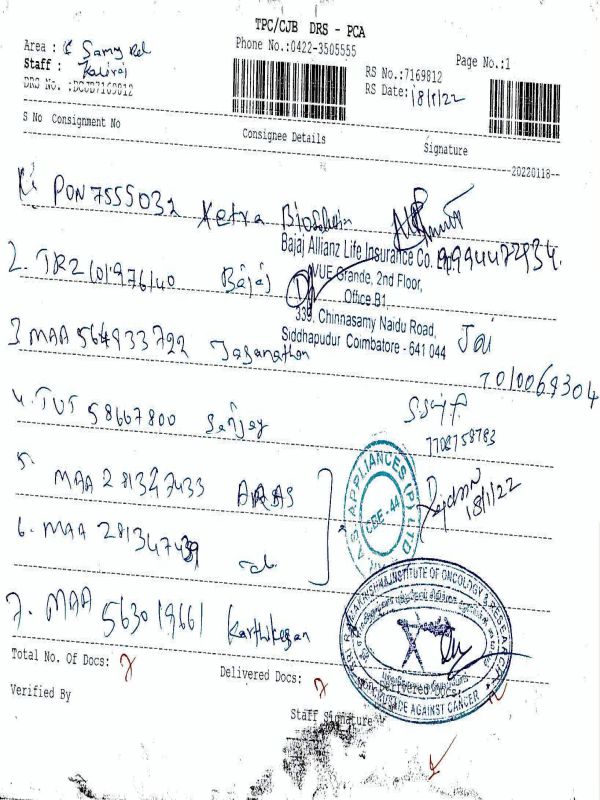 TPC/CJB DRS - PCA
Phone No.:0422-3505555
Page No.:1
Area : Samy Rd
Staff : Kaliraj
DRS No. :DCJB7169812
RS No.:7169812
RS Date: 18/1/22
S No Consignment No Consignee Details Signature
--20220118--
1. PON 7555032 Ketra
Bajaj Allianz Life Insurance Co.
9994472934.
2. TRZ 101976140 Bajaj
VUE Grande, 2nd Floor,
Office B1,
339, Chinnasamy Naidu Road,
Siddhapudur Coimbatore - 641 044
3 MAA 564933722 Jaganathan Jai
7010069304
4. TUT 58667800 Sanjay
7708758783
5. MAA 281347433
A.S. APPLIANCES (P) LTD
CBE - 44
18/1/22
6. MAA 281347439
7. MAA 563019661 Karthikeyan
SRI RAMAKRISHNA INSTITUTE OF ONCOLOGY & RESEARCH
AGAINST CANCER
Total No. Of Docs: 7
Delivered Docs: 7
Verified By
Staff Signature